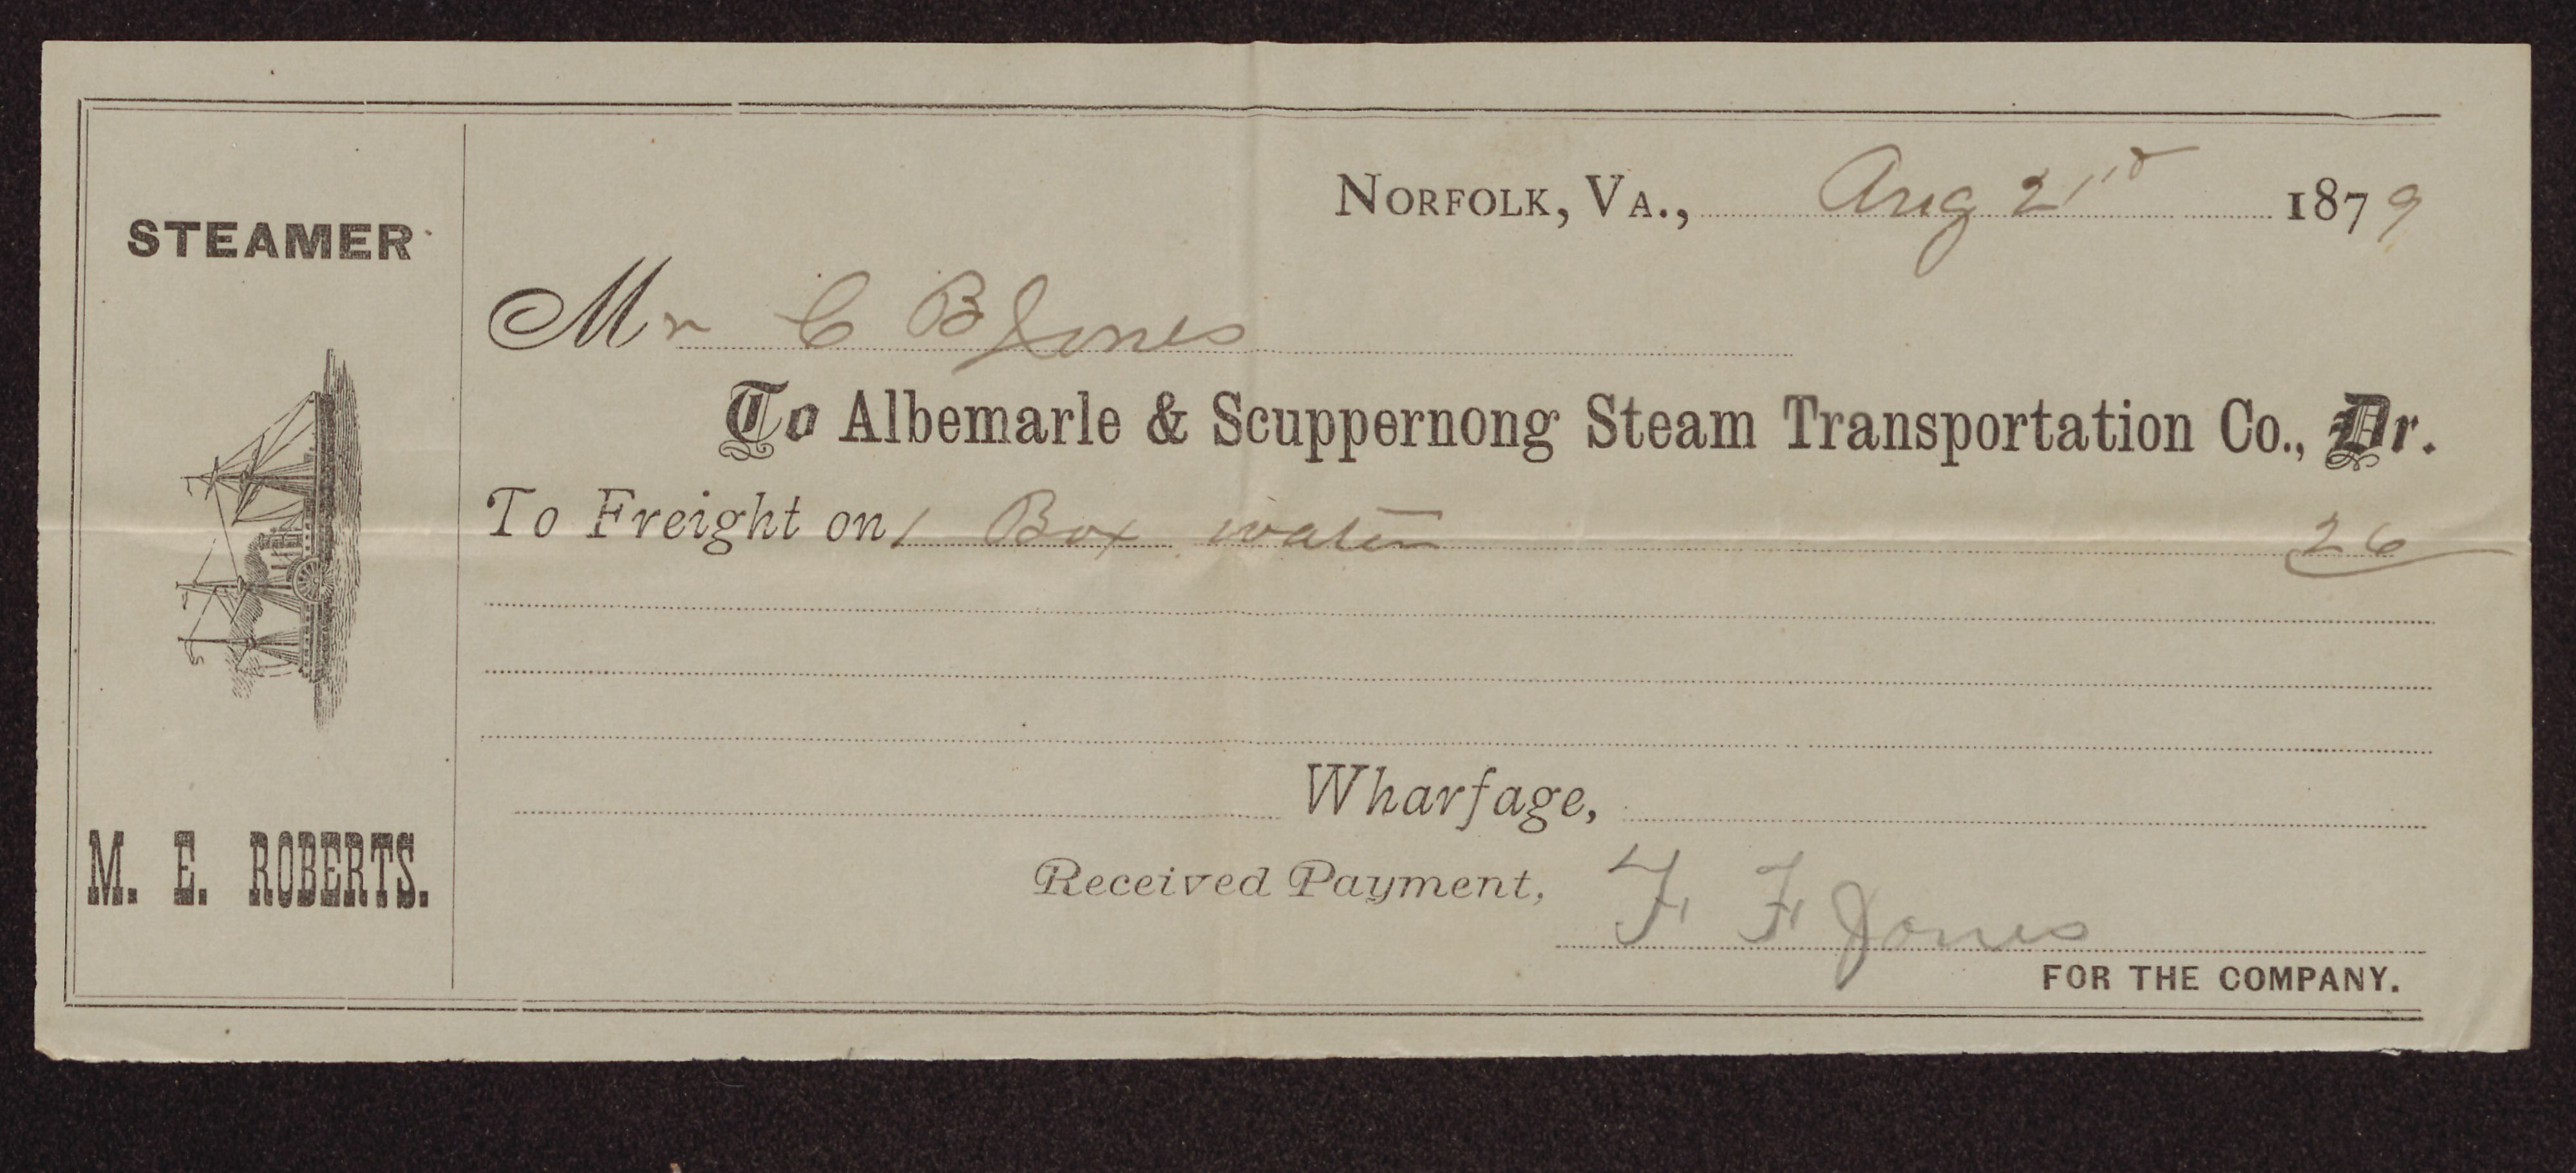 STEAMER
M. E. ROBERTS.
NORFOLK, VA., Aug 21st 1879
Mr C B Jones
To Albemarle & Scuppernong Steam Transportation Co., Dr.
To Freight on 1 Box water 26
Wharfage,
Received Payment, F F Jones
FOR THE COMPANY.